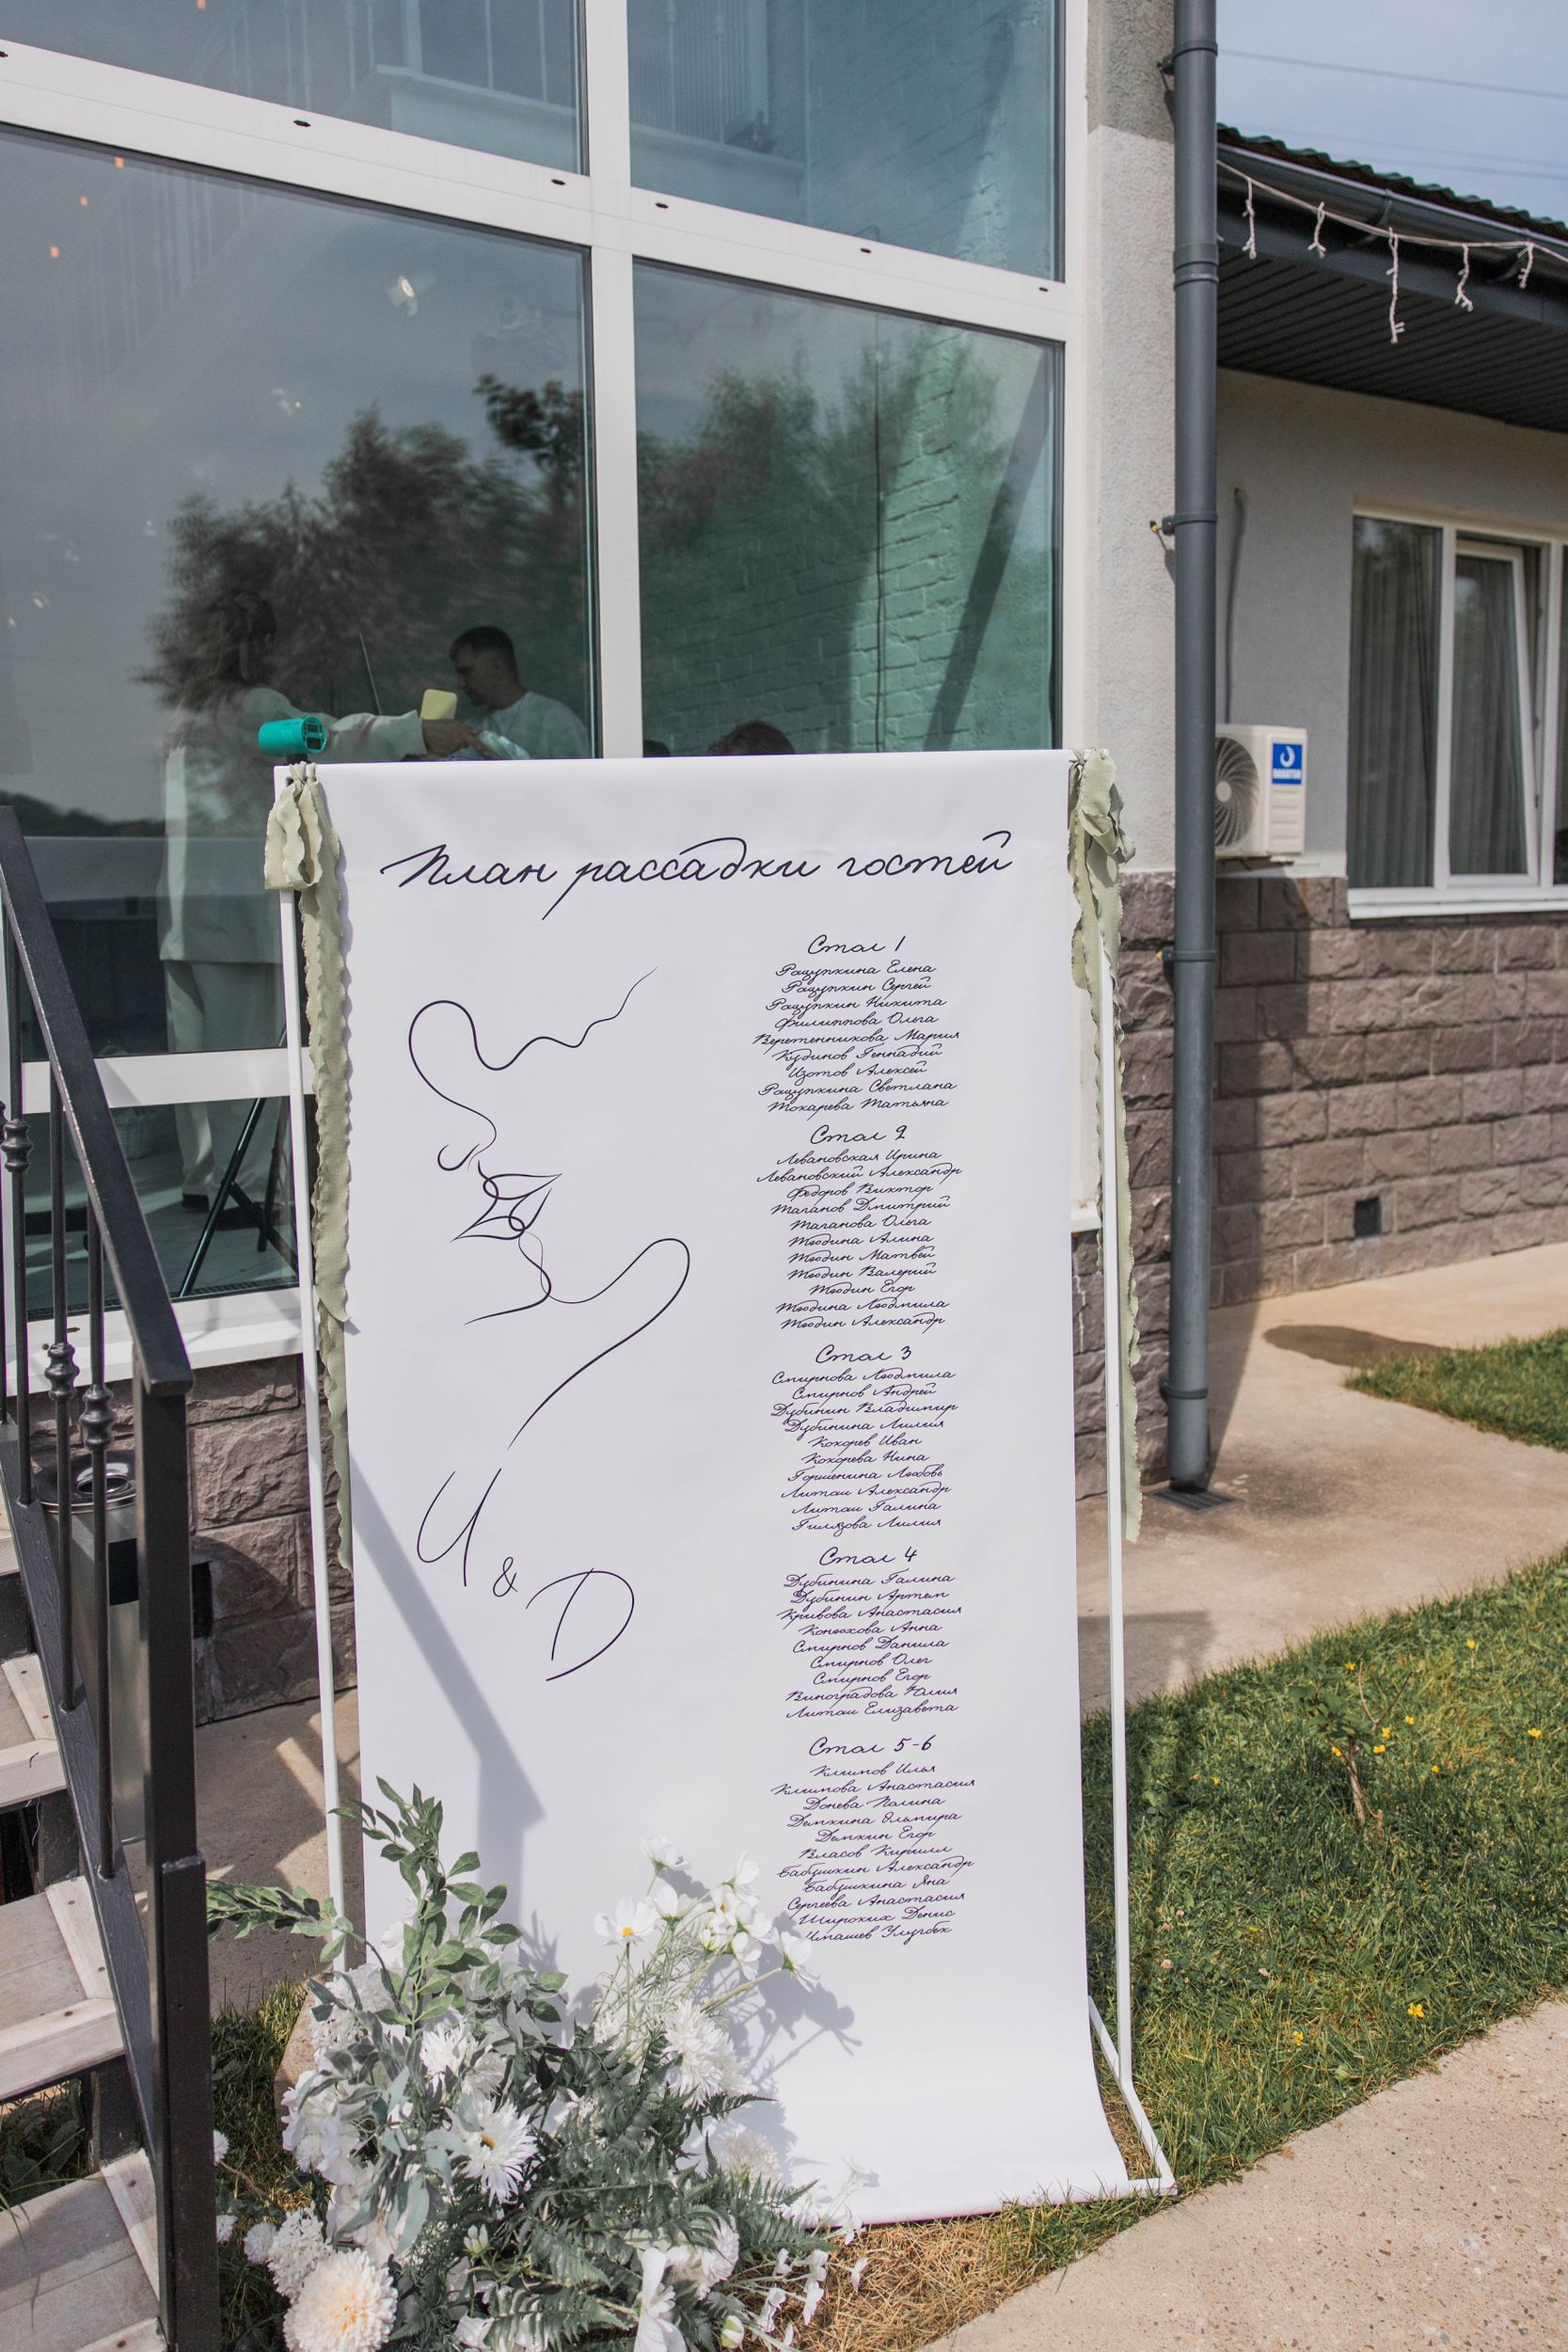 План рассадки гостей
Стол 1
Ращупкина Елена
Ращупкин Сергей
Ращупкин Никита
Филиппова Ольга
Веретенникова Мария
Кудинов Геннадий
Изотов Алексей
Ращупкина Светлана
Токарева Татьяна
Стол 2
Левановская Ирина
Левановский Александр
Федоров Виктор
Таганов Дмитрий
Таганова Ольга
Тюдина Алина
Тюдин Матвей
Тюдин Валерий
Тюдин Егор
Тюдина Людмила
Тюдин Александр
Стол 3
Смирнова Людмила
Смирнов Андрей
Дубинин Владимир
Дубинина Лилия
Кокорев Иван
Кокорева Нина
Горшенина Любовь
Литош Александр
Литош Галина
Гилязова Лилия
Стол 4
Дубинина Галина
Дубинин Артем
Кривова Анастасия
Конюхова Анна
Смирнов Данила
Смирнов Олег
Смирнов Егор
Виноградова Юлия
Литош Елизавета
Стол 5-6
Климов Илья
Климова Анастасия
Донева Полина
Демкина Эльмира
Демкин Егор
Власов Кирилл
Бабушкин Александр
Бабушкина Яна
Сергеева Анастасия
Широких Денис
Имашев Улугбек
И & D